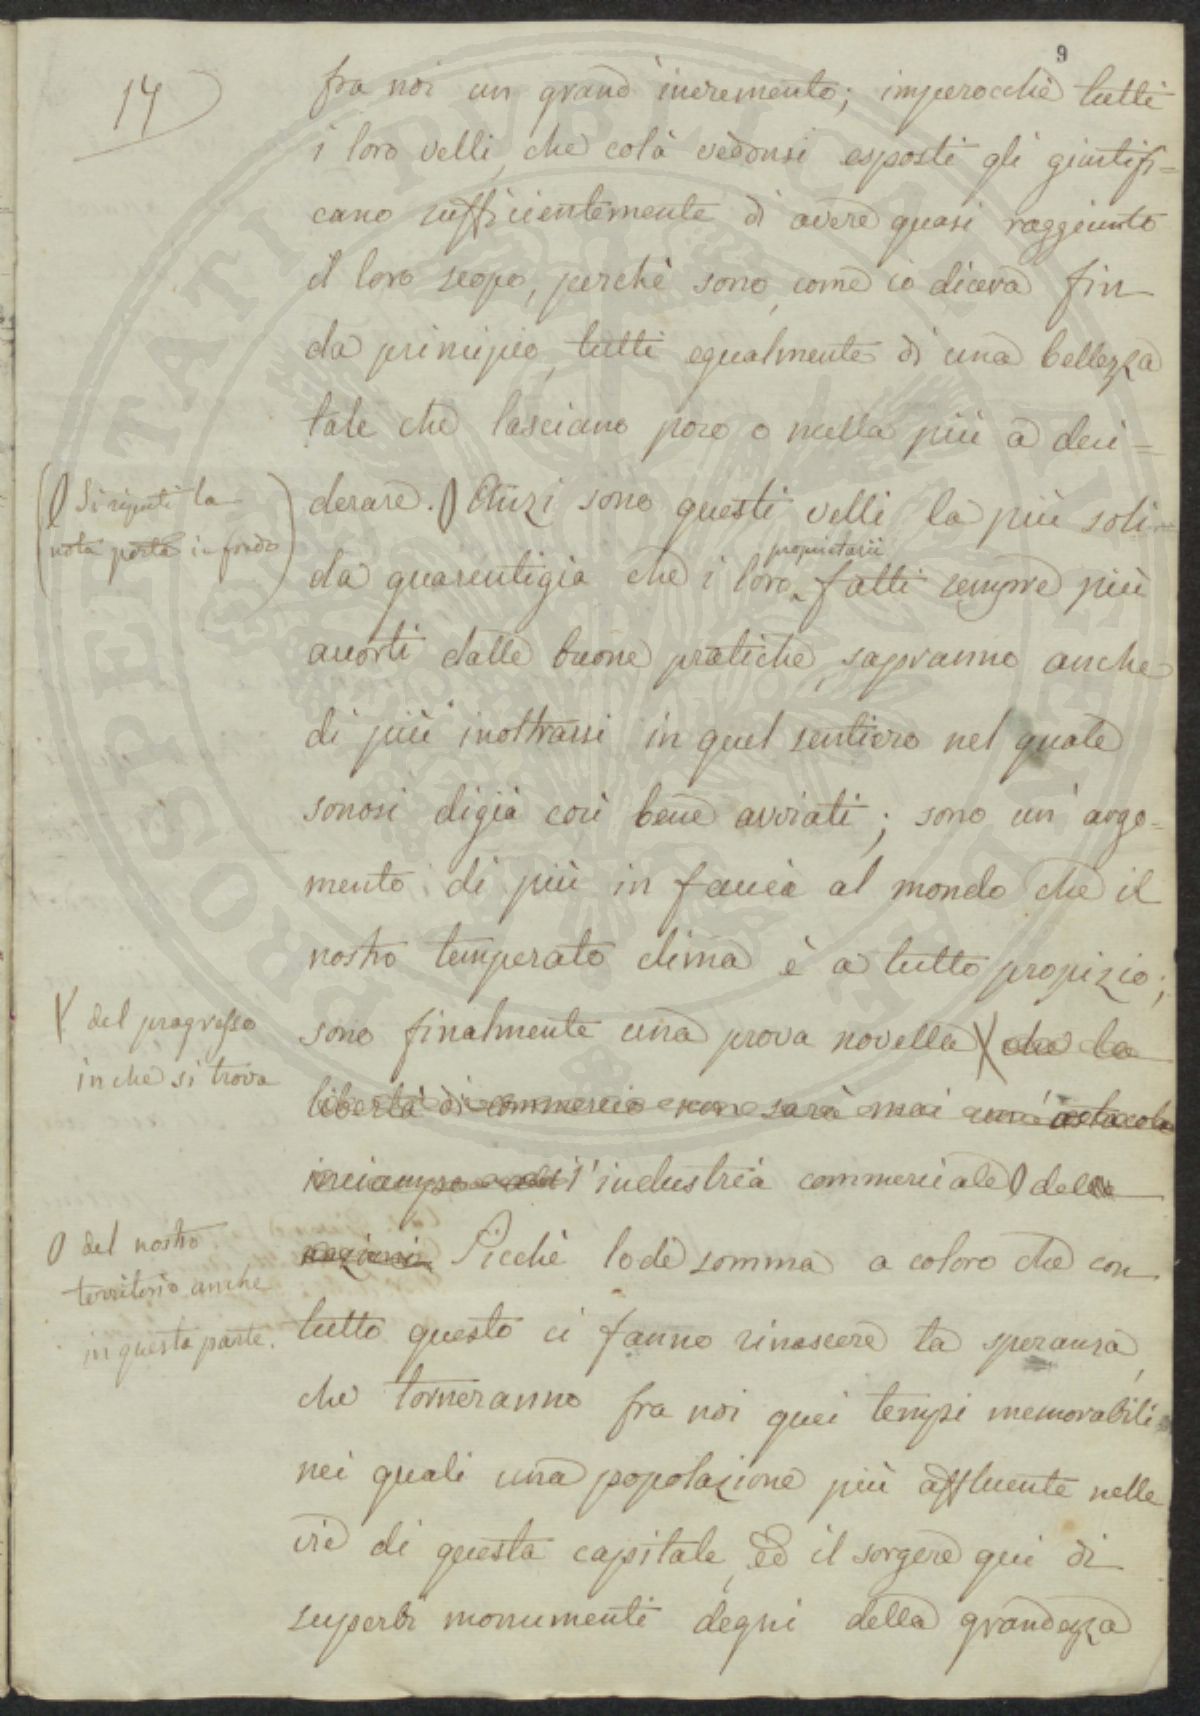 9
14
fra noi un grand'incremento; imperocchè tutti
i loro velli, che colà vedonsi esposti gli giustifi=
cano sufficientemente di avere quasi raggiunto
il loro scopo, perchè sono, come io diceva fin
da principio, tutti egualmente di una bellezza
tale che lasciano poco o nulla più a desi=
derare. O Anzi sono questi velli la più soli=
da guarentigia che i loro proprietarii fatti sempre più
accorti dalle buone pratiche, sapranno anche
di più inoltrarsi in quel sentiero nel quale
sonosi digià così bene avviati; sono un'argo=
mento di più in faccia al mondo che il
nostro temperato clima è a tutto propizio;
sono finalmente una prova novella X che la
libertà di commercio non sarà mai un'ostacolo
inciampo all'industria commerciale O delle
nazioni. Sicchè lode somma a coloro che con
tutto questo ci fanno rinascere la speranza,
che torneranno fra noi quei tempi memorabili
nei quali una popolazione più affluente nelle
vie di questa capitale, ed il sorgere qui di
superbi monumenti degni della grandezza
O Si riporti la
nota posta in fondo
X del progresso
in che si trova
O del nostro
territorio anche
in questa parte.
PROSPERITATI PUBLICAE